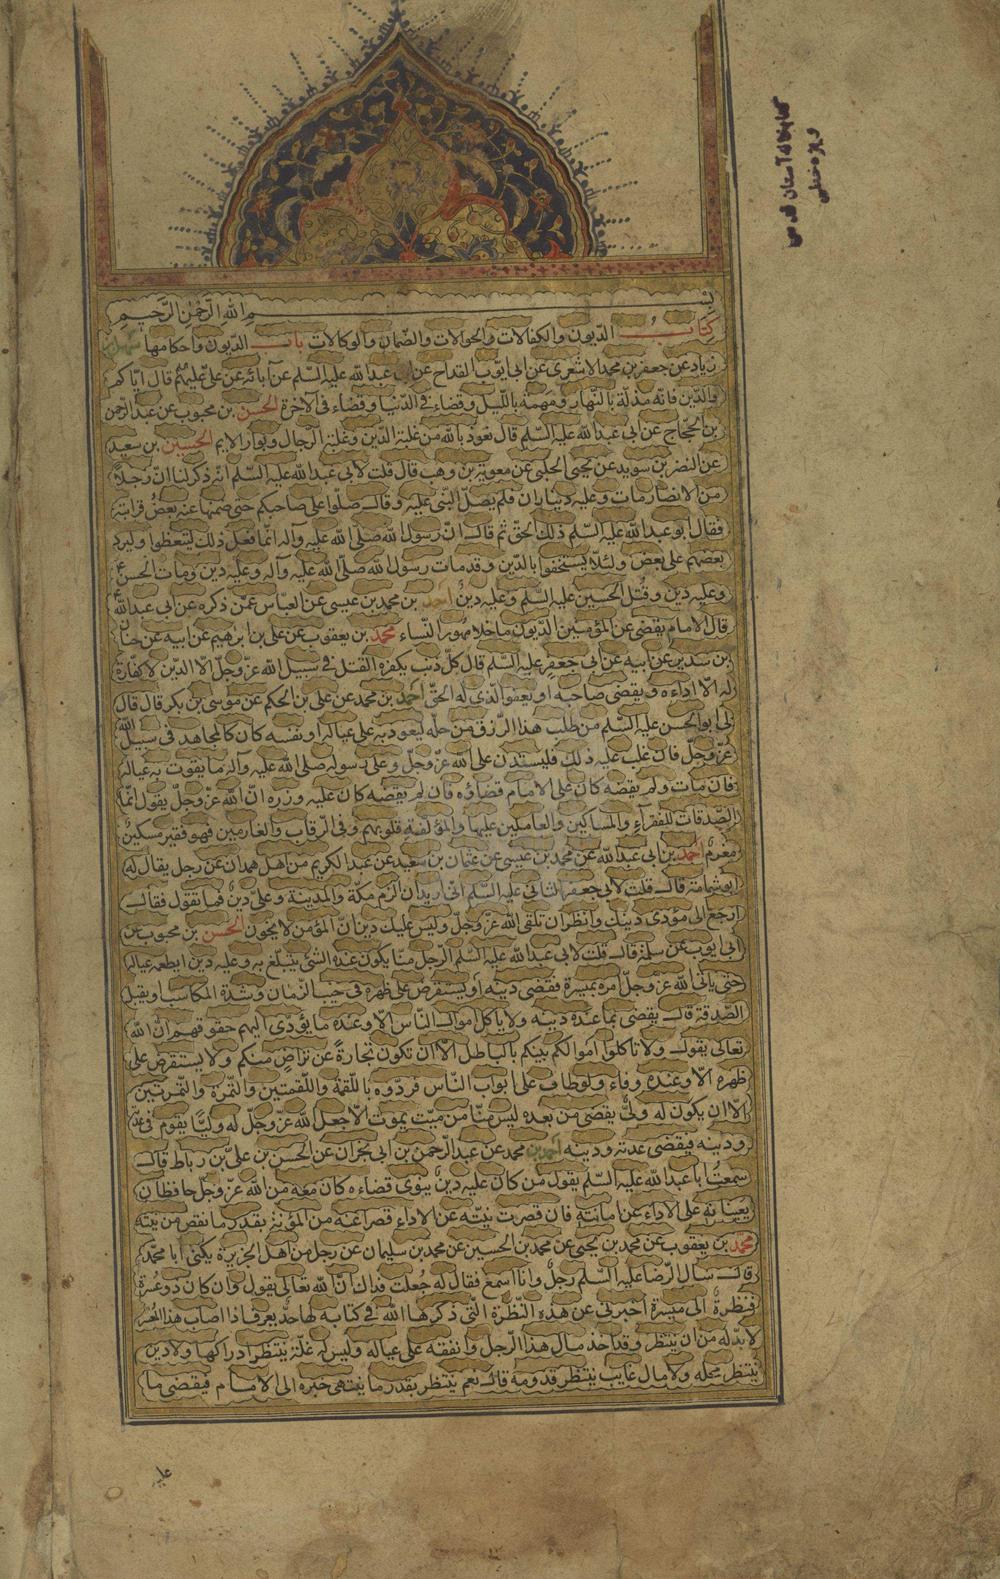 بسم الله الرحمن الرحيم
كتاب الديون والكفالات والحوالات والضمان والوكالات باب الديون واحكامها سهل بن
زياد عن جعفر بن محمد الاشعرى عن ابى ايوب القداح عن ابى عبد الله عليه السلم عن آبائه عن على عليهم قال اياكم
والدين فانه مذلة بالنهار ومهمة بالليل وقضاء فى الدنيا وقضاء فى الاخرة الحسن بن محبوب عن عبد الرحمن
بن الحجاج عن ابى عبد الله عليه السلم قال نعوذ بالله من غلبة الدين وغلبة الرجال وبوار الايم الحسين بن سعيد
عن النضر بن سويد عن يحيى الحلبى عن معوية بن وهب قال قلت لابى عبد الله عليه السلم انه ذكر لنا ان رجلا
من الانصار مات وعليه ديناران فلم يصل النبى عليه وقال صلوا على صاحبكم حتى ضمنها عنه بعض قرابته
فقال ابو عبد الله عليه السلم ذلك الحق ثم قال ان رسول الله صلى الله عليه وآله انما فعل ذلك ليتعظوا وليرد
بعضهم على بعض ولئلا يستخفوا بالدين وقد مات رسول الله صلى الله عليه وآله وعليه دين ومات الحسن ع
وعليه دين وقتل الحسين عليه السلم وعليه دين احمد بن محمد بن عيسى عن العباس عمن ذكره عن ابى عبد الله ع
قال الامام يقضى عن المؤمنين الديون ما خلا مهور النساء محمد بن يعقوب عن على بن ابرهيم عن ابيه عن حنان
بن سدير عن ابيه عن ابى جعفر عليه السلم قال كل ذنب يكفره القتل فى سبيل الله عز وجل الا الدين لا كفارة
له الا اداءه ويقضى صاحبه او يعفو الذى له الحق احمد بن محمد عن على بن الحكم عن موسى بن بكر قال قال
لى ابو الحسن عليه السلم من طلب هذا الرزق من حله ليعود به على عياله او نفسه كان كالمجاهد فى سبيل الله
عز وجل فان غلب عليه ذلك فليستدن على الله عز وجل وعلى رسوله صلى الله عليه وآله ما يقوت به عياله
فان مات ولم يقضه كان على الامام قضاؤه فان لم يقضه كان عليه وزره ان الله عز وجل يقول انما
الصدقات للفقراء والمساكين والعاملين عليها والمؤلفة قلوبهم وفى الرقاب والغارمين فهو فقير مسكين
مغرم احمد بن ابى عبد الله عن محمد بن عيسى عن عثمان بن سعيد عن عبد الكريم من اهل همدان عن رجل يقال له
ابو ثمامة قال قلت لابى جعفر الثانى عليه السلم انى اريد ان الزم مكة والمدينة وعلى دين فما تقول فقال
ارجع الى مؤدى دينك وانظر ان تلقى الله عز وجل وليس عليك دين ان المؤمن لا يخون الحسن بن محبوب عن
ابى ايوب عن سلمة قال قلت لابى عبد الله عليه السلم الرجل منا يكون عنده الشئ يتبلغ به وعليه دين ايطعمه عياله
حتى ياتى الله عز وجل امره بميسرة فقضى دينه او يستقرض على ظهره فى خبث الزمان وشدة المكاسب او يقبل
الصدقة قال يقضى بما عنده دينه ولا ياكل اموال الناس الا وعنده ما يؤدى اليهم حقوقهم ان الله
تعالى يقول ولا تاكلوا اموالكم بينكم بالباطل الا ان تكون تجارة عن تراض منكم ولا يستقرض على
ظهره الا وعنده وفاء ولو طاف على ابواب الناس فردوه باللقمة واللقمتين والتمرة والتمرتين
الا ان يكون له ولى يقضى من بعده ليس منا من ميت يموت الا جعل الله عز وجل له وليا يقوم فى عد
ودينه فيقضى عدته ودينه احمد بن محمد عن عبد الرحمن بن ابى نجران عن الحسن بن على بن رباط قال
سمعت ابا عبد الله عليه السلم يقول من كان عليه دين ينوى قضاءه كان معه من الله عز وجل حافظان
يعينانه على الاداء عن امانته فان قصرت نيته عن الاداء قصرا عنه من المؤنة بقدر ما نقص من نيته
محمد بن يعقوب عن محمد بن يحيى عن محمد بن الحسين عن محمد بن سليمان عن رجل من اهل الجزيرة يكنى ابا محمد
قال سال الرضا عليه السلم رجل وانا اسمع فقال له جعلت فداك ان الله تعالى يقول وان كان ذو عسرة
فنظرة الى ميسرة اخبرنى عن هذه النظرة التى ذكرها الله فى كتابه لها حد يعرف اذا اصاب هذا المعسر
لا بد له من ان ينتظر وقد اخذ مال هذا الرجل وانفقه على عياله وليس له غلة ينتظر ادراكها ولا دين
ينتظر محله ولا مال غايب ينتظر قدومه قال نعم ينتظر بقدر ما ينتهى خبره الى الامام فيقضى ما
عليه
كتابخانه آستان قدس
ويژه خطى